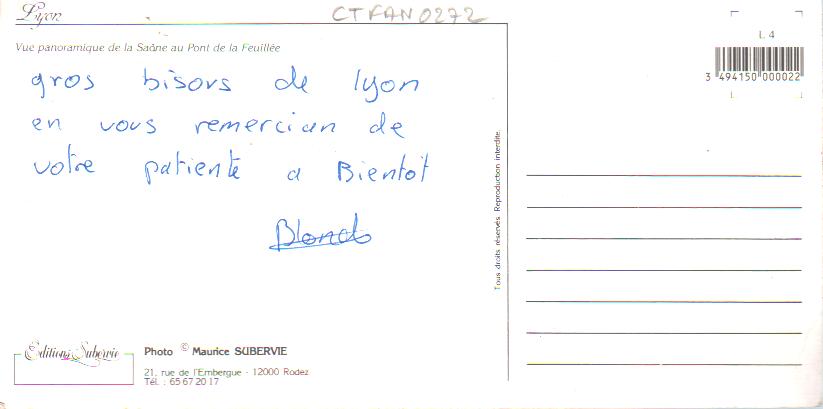 Lyon
CTFAN0272
Vue panoramique de la Saône au Pont de la Feuillée
L 4
3 494150 000022
gros bisous de lyon
en vous remercian de
votre patiente a Bientot
Tous droits réservés. Reproduction interdite.
Editions Subervie
Photo © Maurice SUBERVIE
21, rue de l'Embergue - 12000 Rodez
Tél. : 65 67 20 17